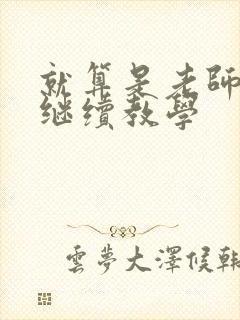 就算是老師
继续教學
雲夢大澤候韓